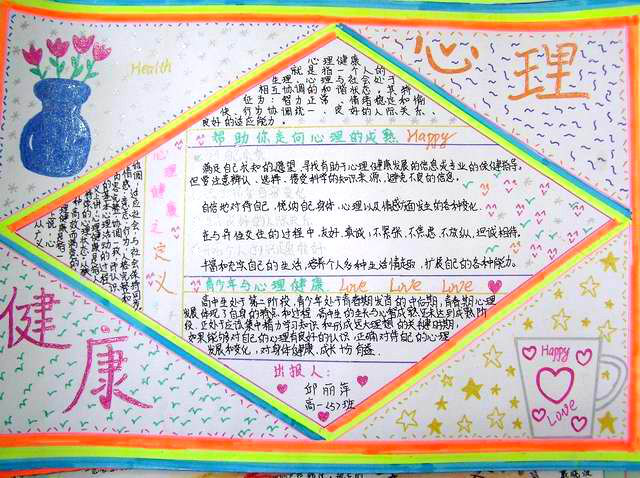 心理
Health
心理健康
就是指一个人的
生理、心理与社会处于
相互协调的和谐状态，其特
征为：智力正常、情绪稳定和愉
快、行为协调统一、良好的人际关系、
良好的适应能力。
帮助你走向心理的成熟 Happy
满足自己求知的愿望，寻找有助于心理健康发展的信息或专业的保健指导。
但要注意辨认、选择、接受科学的知识来源，避免不良的信息。
自信地对待自己，悦纳自己身体、心理以及情感方面发生的各种变化
在与异性交往的过程中，友好、真诚，不紧张、不焦虑、不放纵、坦诚相待。
丰富和充实自己的生活，培养个人多种生活情趣，扩展自己的各种能力。
心理健康之定义
青少年与心理健康 Love Love Love
高中生处于第二阶段，青少年处于青春期发育的中后期，青春期心理
发展体现了自身的特点和过程，高中生的生长与智力成熟还未达到成熟阶
段，正处于应该集中精力学习知识和形成远大理想的关键时期，
如果能够对自己的心理有良好的认识，正确对待自己的心理
发展和变化，对身体健康、成长十分有益。
出报人：
邱丽萍
高一<5>班
健康
Happy
Love